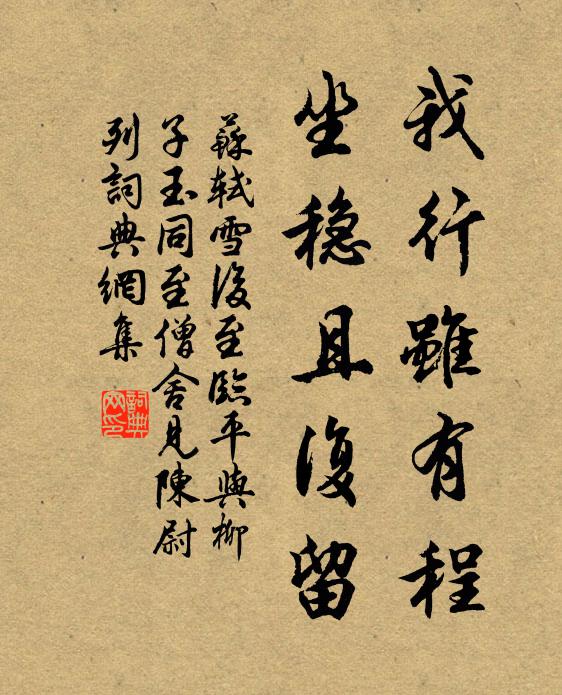 我行雖有程
坐稳且復留
蘇軾雪後至臨平與柳
子玉同至僧舍見陳尉
列詞典網集
詞典
网印